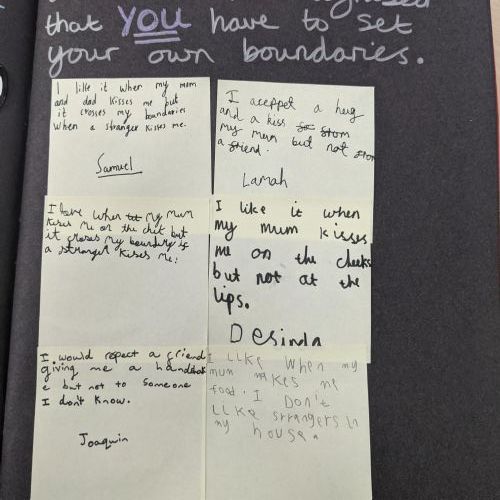 that YOU have to set
your own boundaries.
I like it when my mom
and dad kisses me but
it crosses my boundaries
when a stranger kisses me.
Samuel
I aceppet a hug
and a kiss
my mum but not
a friend.
Lamah
I love when my mum
kises me on the
but
it croses my boundary if
a stronger kises me.
I like it when
my mum kisses
me on the cheeks
but not at the
lips.
Desinda
I would repect a friend
giving me a
but not to someone
I don't know.
Joaquin
I LLKe when my
mum makes me
food. I Don't
LLKe strangers in
my house.